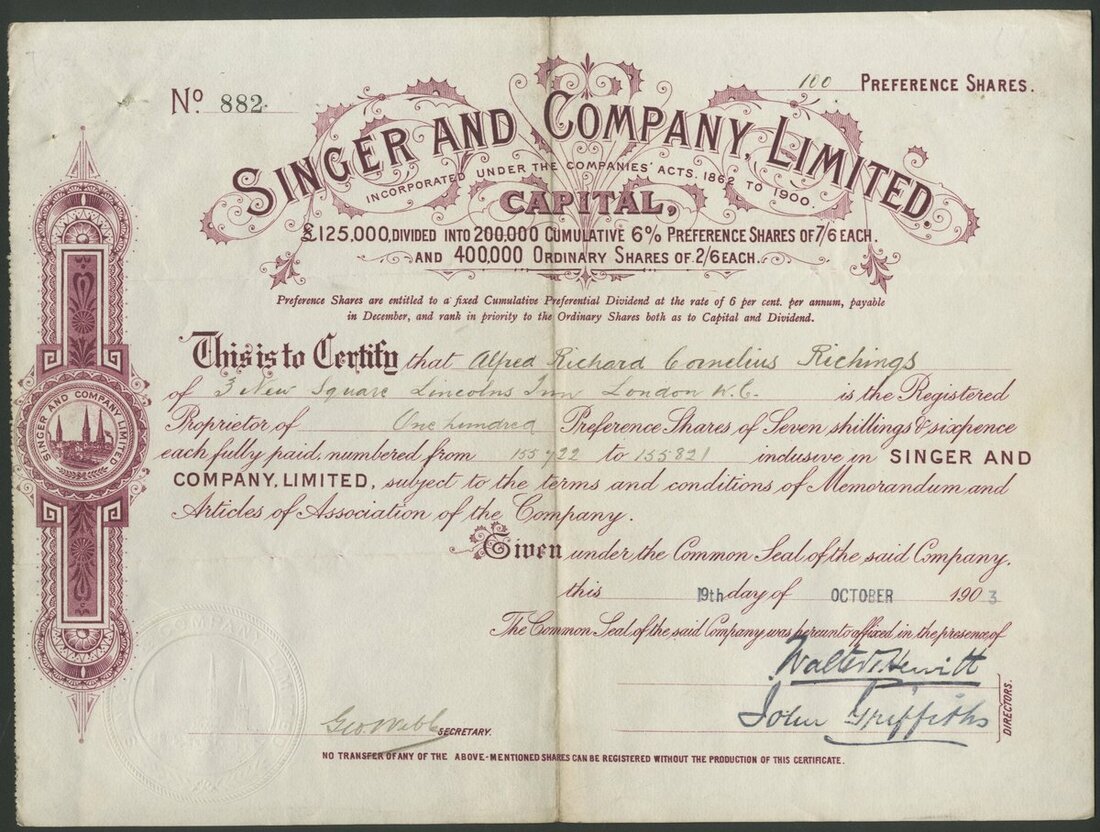 No 882
100 PREFERENCE SHARES.
SINGER AND COMPANY, LIMITED.
INCORPORATED UNDER THE COMPANIES' ACTS. 1862 TO 1900.
CAPITAL,
£125,000, DIVIDED INTO 200,000 CUMULATIVE 6% PREFERENCE SHARES OF 7/6 EACH.
AND 400,000 ORDINARY SHARES OF 2/6 EACH.
Preference Shares are entitled to a fixed Cumulative Preferential Dividend at the rate of 6 per cent. per annum, payable
in December, and rank in priority to the Ordinary Shares both as to Capital and Dividend.
This is to Certify that Alfred Richard Cornelius Richings
of 3 New Square Lincolns Inn London W.C. is the Registered
Proprietor of One hundred Preference Shares of Seven shillings & sixpence
each fully paid, numbered from 155722 to 155821 inclusive in SINGER AND
COMPANY, LIMITED, subject to the terms and conditions of Memorandum and
Articles of Association of the Company.
Given under the Common Seal of the said Company.
this 19th day of OCTOBER 1903
The Common Seal of the said Company was hereunto affixed in the presence of
Walter Hewitt
John Griffiths
DIRECTORS.
Geo. Webb SECRETARY.
NO TRANSFER OF ANY OF THE ABOVE-MENTIONED SHARES CAN BE REGISTERED WITHOUT THE PRODUCTION OF THIS CERTIFICATE.
SINGER AND COMPANY LIMITED
COMPANY